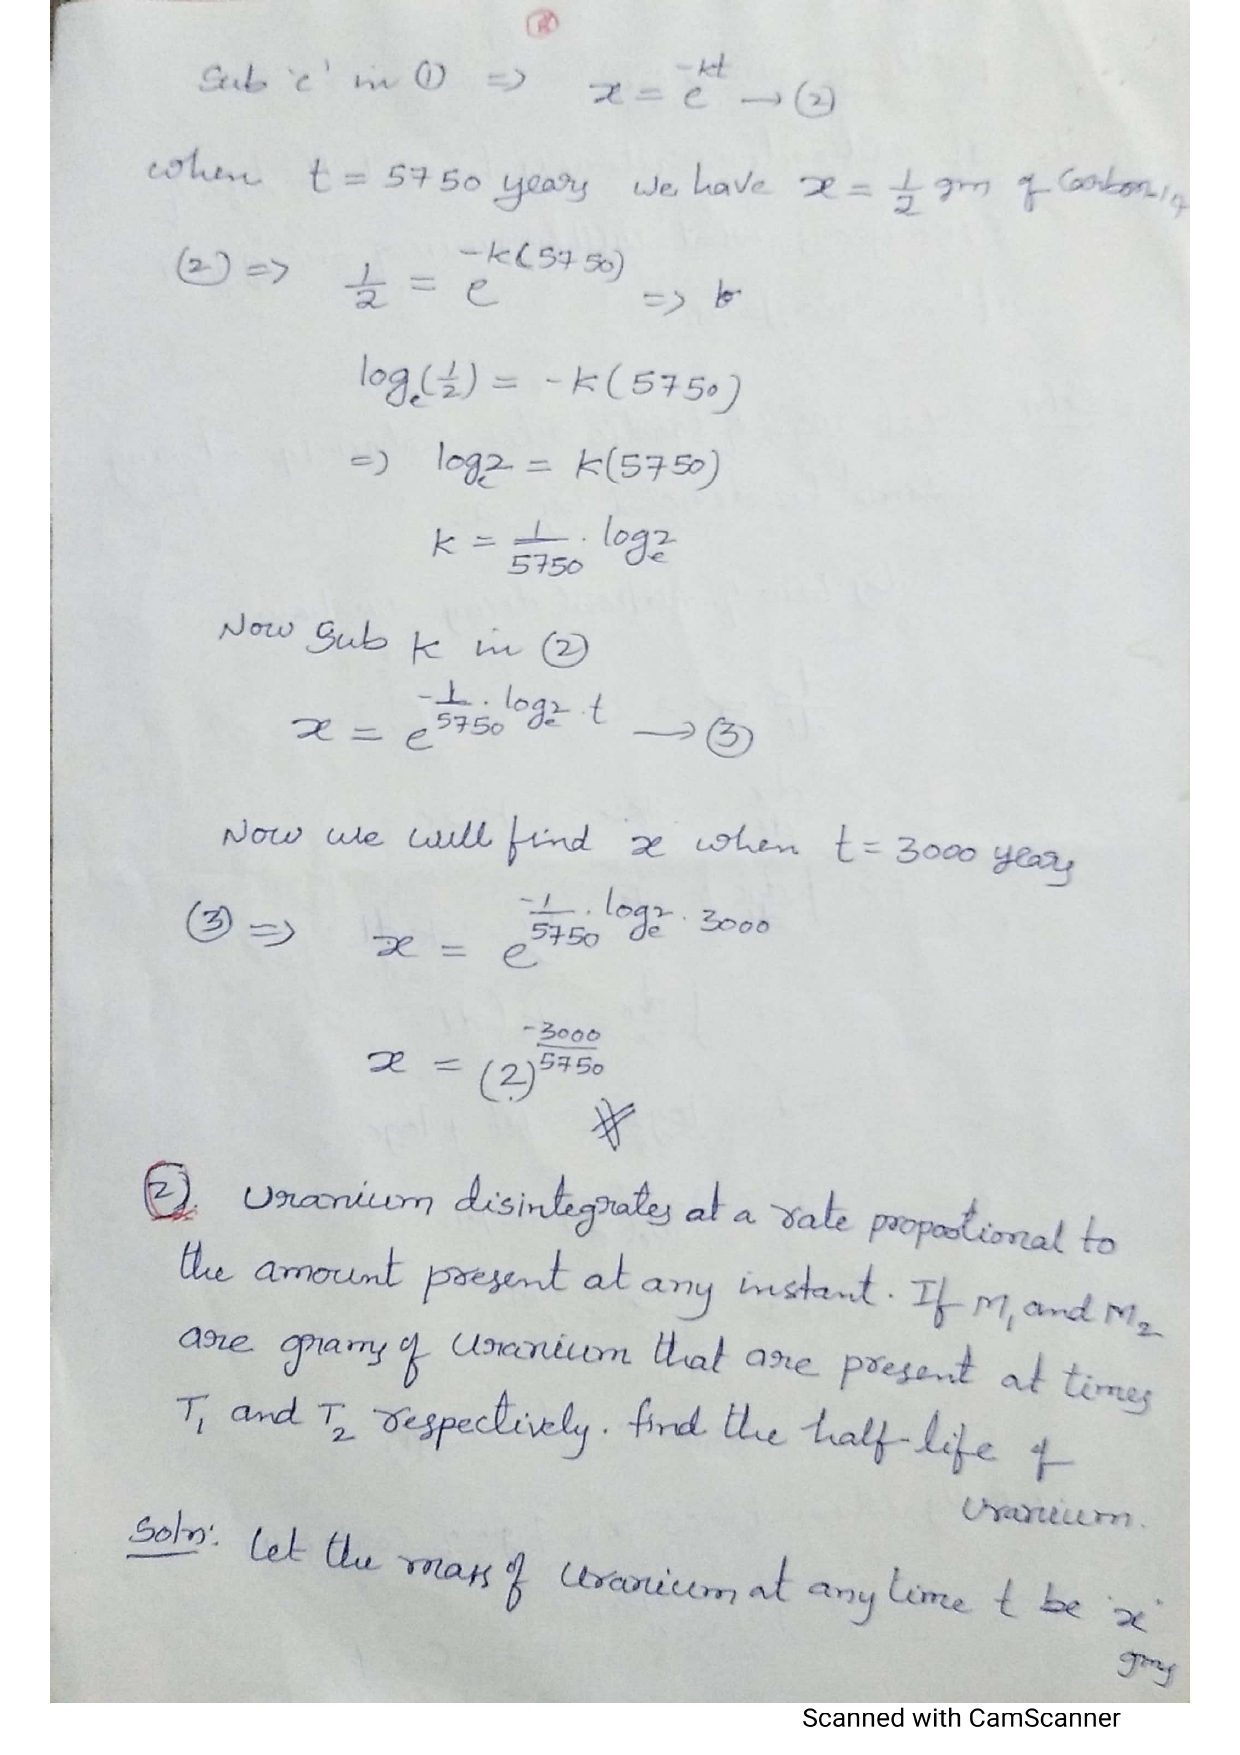 Sub 'c' in ① => x = e^{-kt} → ②
when t = 5750 years we have x = 1/2 gm of Carbon-14
(2) => 1/2 = e^{-k(5750)} => k
log_e(1/2) = -k(5750)
=) log_e 2 = k(5750)
k = 1/5750 . log_e 2
Now Sub k in ②
x = e^{-1/5750 . log_e 2 . t} → ③
Now we will find x when t = 3000 years
③ => x = e^{-1/5750 . log_e 2 . 3000}
x = (2)^{-3000/5750}
②. Uranium disintegrates at a rate proportional to
the amount present at any instant. If M₁ and M₂
are grams of Uranium that are present at times
T₁ and T₂ respectively. find the half-life of
Uranium.
Soln: Let the mass of Uranium at any time t be 'x'
gms
Scanned with CamScanner